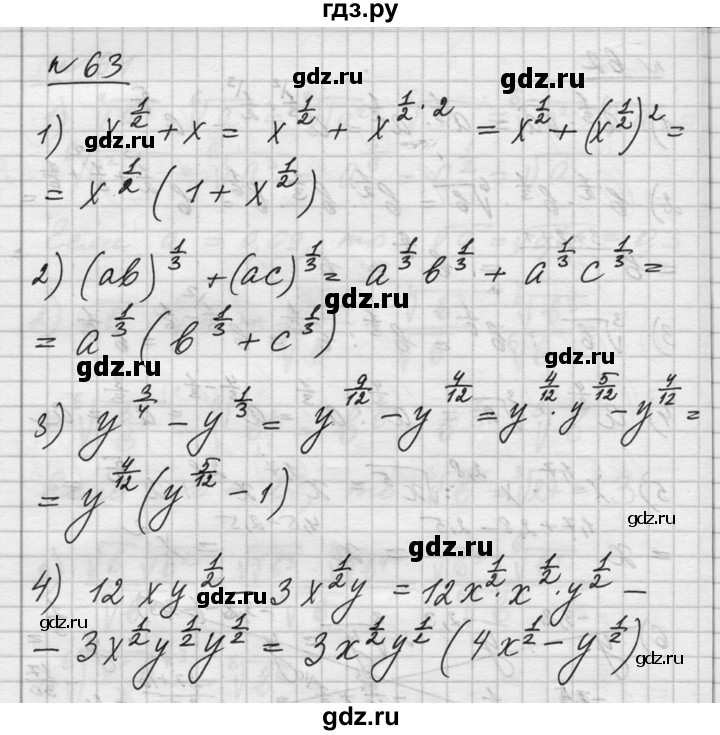 гдз.ру
№ 63
gdz.ru
1) x^{1/2} + x = x^{1/2} + x^{1/2 · 2} = x^{1/2} + (x^{1/2})^2 =
gdz.ru
= x^{1/2} (1 + x^{1/2})
2) (ab)^{1/3} + (ac)^{1/3} = a^{1/3} b^{1/3} + a^{1/3} c^{1/3} =
gdz.ru
= a^{1/3} (b^{1/3} + c^{1/3})
gdz.ru
gdz.ru
3) y^{3/4} − y^{1/3} = y^{9/12} − y^{4/12} = y^{4/12} · y^{5/12} − y^{4/12} =
= y^{4/12} (y^{5/12} − 1)
gdz.ru
gdz.ru
4) 12 x y^{1/2} − 3 x^{1/2} y = 12 x^{1/2} · x^{1/2} · y^{1/2} −
gdz.ru
gdz.ru
− 3x^{1/2} y^{1/2} y^{1/2} = 3x^{1/2} y^{1/2} (4x^{1/2} − y^{1/2})
gdz.ru
gdz.ru